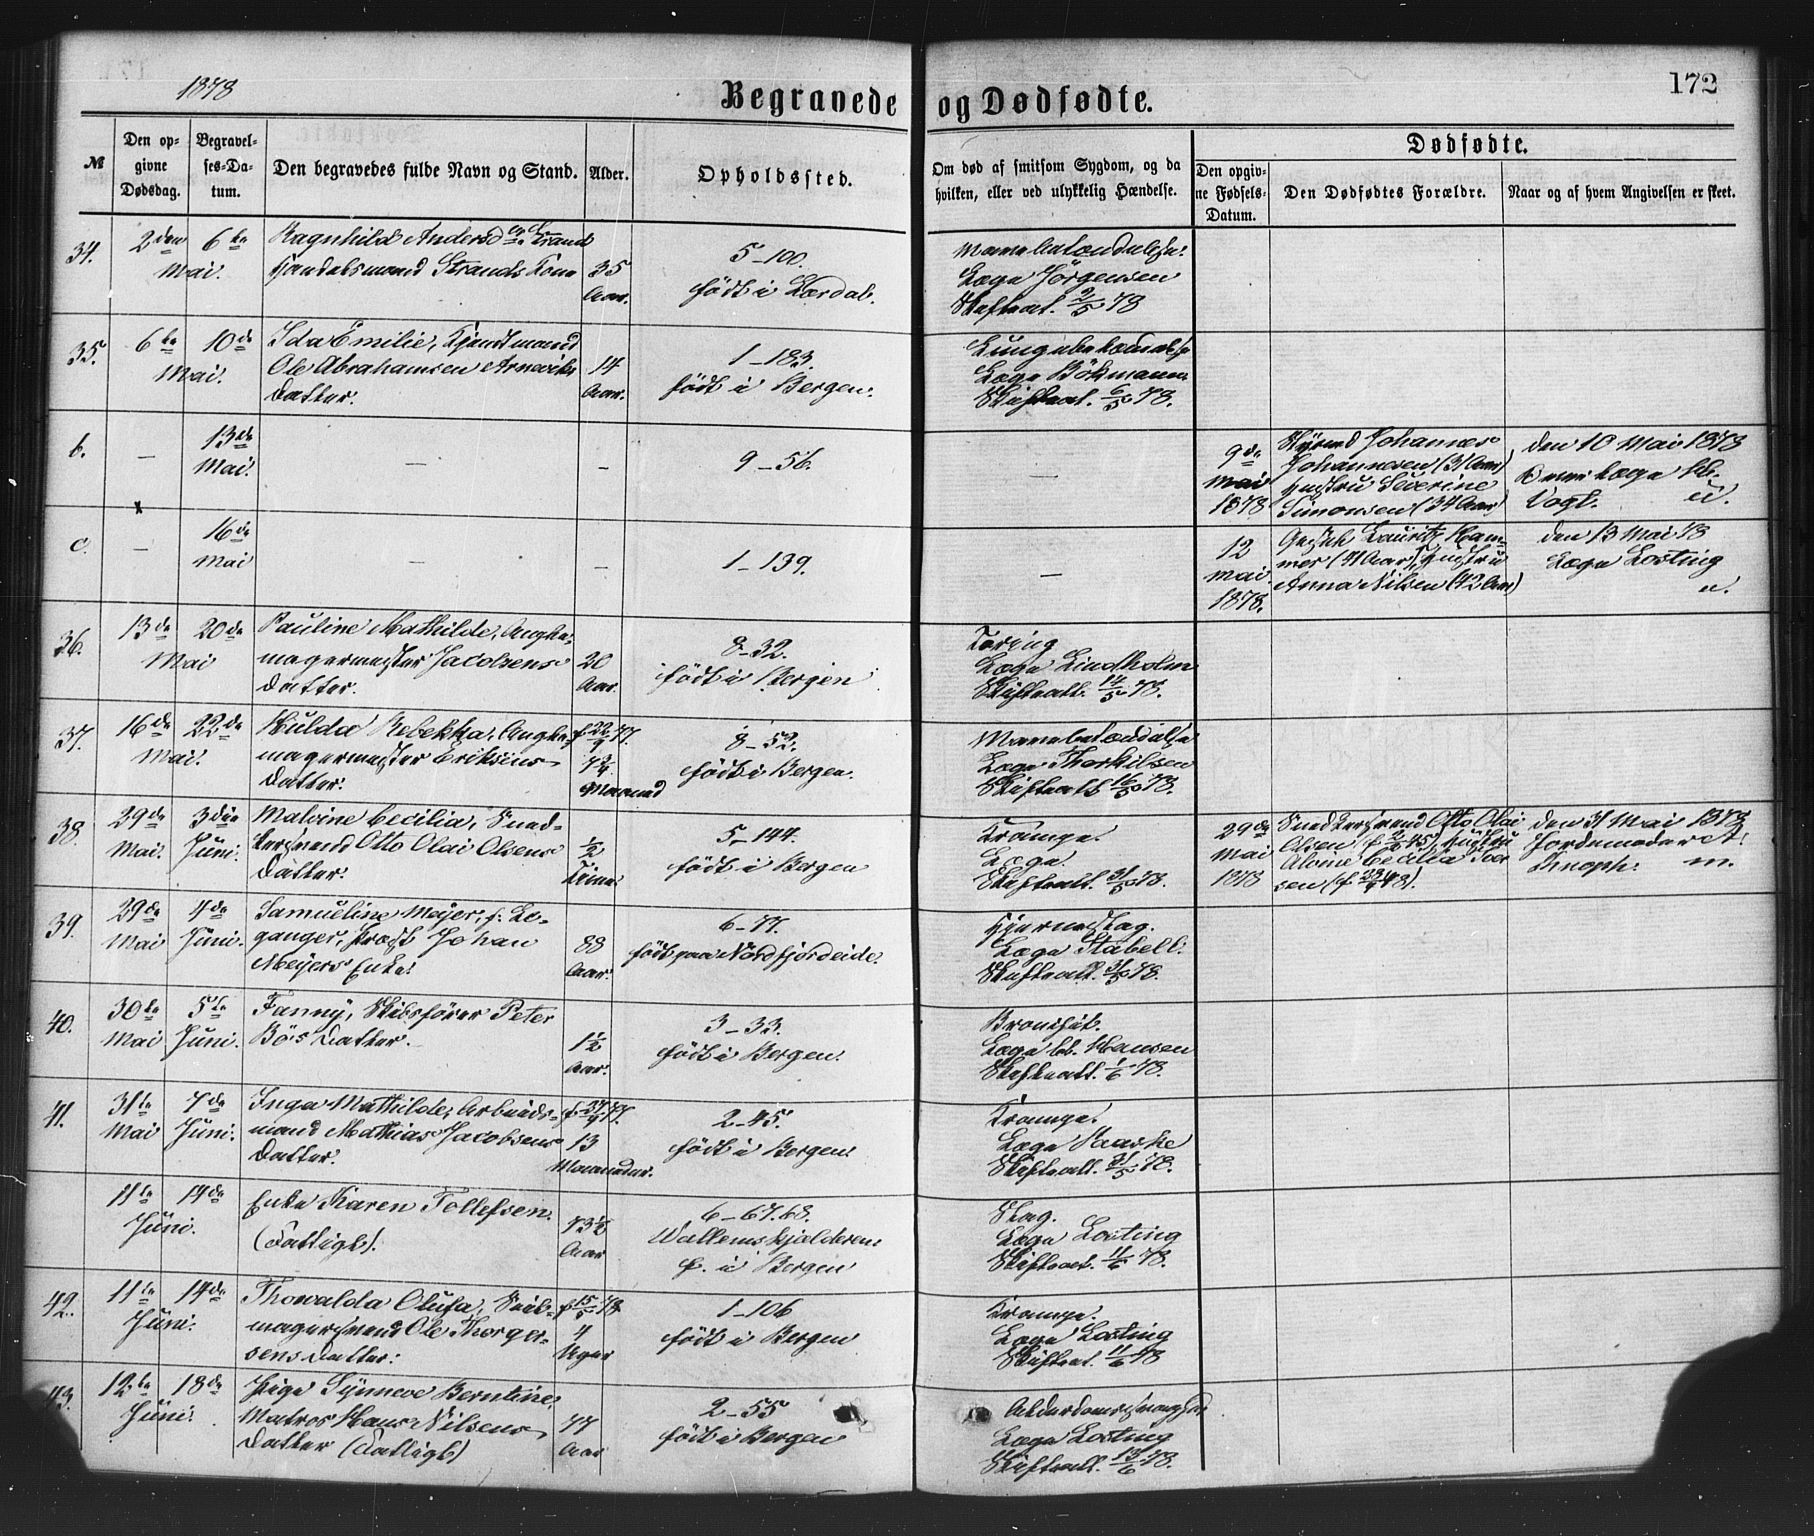 1878
172
Begravede og Dødfødte.
№
Den opgivne Dødsdag.
Begravelses-Datum.
Den begravedes fulde Navn og Stand.
Alder.
Opholdssted.
Om død af smitsom Sygdom, og da hvilken, eller ved ulykkelig Hændelse.
Dødfødte.
Den opgivne Fødsels-Datum.
Den Dødfødtes Forældre.
Naar og af hvem Angivelsen er skeet.
34.
2den
Mai.
6te
Ragnhild Andersd.
Strands Kone
35
Aar.
5–100.
født i Lærdal.
Mavebetændelse.
Læge Jörgensen
Skifteat. 2/5 78
35.
6te
Mai.
10de
Ida Emilie,
Ole Abrahamsen Arneviks
Datter.
14
Aar.
1–183.
født i Bergen.
Lungebetændelse
Læge Bökmann.
Skifteat. 6/5 78.
b.
–
13de
Mai.
–
–
9–56.
–
9de
Mai
1878
Johannes
Johannesen (31 Aar)
Hustru Severine
Simonsen (34 Aar)
den 10 Mai 1878
Læge
Vogt. u.
c.
–
16de
Mai
–
–
1–139.
–
12
Mai
1878.
Lauritz Ham-
mer (41 Aar), Hustru
Anna Nilsen (42 Aar)
den 13 Mai 78
Læge Losting
u.
36.
13de
Mai
20de
Pauline Mathilde,
magermester Jacobsens
Datter.
20
Aar.
8–32.
født i Bergen
Tæring
Læge Lindholm
Skifteatt. 14/5 78.
37.
16de
Mai.
22de
Hulda Rebekka,
magermester Eriksens
Datter.
7 3/4
Maaned
8–52.
født i Bergen.
Mavebetændelse
Læge Thorkilsen
Skifteatt. 16/5 78.
38.
29de
Mai.
3die
Juni.
Malvine Cecilia, Sned-
kersvend Otto Olai Olsens
Datter.
1/2
Time
5–144.
født i Bergen
Krampe.
Læge
Skifteatt. 31/5 78.
29de
Mai
1878
Snedkersvend Otto Olai
Olsen
Alvine Cecilia Iver
sen
den 31 Mai 1878
Jordemoder A.
Knoph. m.
39.
29de
Mai
4de
Juni.
Samueline Meyer, f. Le-
ganger, Provst Johan
Meyers Enke.
88
Aar.
6–77.
født paa Nordfjordeide.
Hjerneslag.
Læge Stabell.
Skifteatt. 31/5 78.
40.
30te
Mai
5te
Juni.
Fanny, Skibsfører Peter
Bös Datter.
1 1/2
Aar.
3–33.
født i Bergen.
Bronchit.
Læge Kl. Hansen
Skifteatt. 1/6 78.
41.
31te
Mai
7de
Juni.
Inga Mathilde, Arbeids-
mand Mathias Jacobsens
Datter.
13
Maaneder.
2–45.
født i Bergen.
Krampe.
Læge Paaske
Skifteatt. 31/5 78.
11te
Juni.
19de
Enke Karen Tollefsen.
(Fattigl).
73 1/2
Aar
6–67.68.
Wallemskjælderen
f. i Bergen
Slag.
Læge Losting
Skifteat. 11/6 78.
42.
11te
Juni.
14de
Thowalda Olufa, Seil-
magersvend Ole Thorger-
sens Datter.
f. 15/5 78
4
Uger
1–106
født i Bergen
Krampe.
Læge Losting
Skifteat. 11/6 78
43.
12te
Juni.
18de
Pige Synneve Berntine,
Matros Hans Nilsens
Datter (Fattigl)
77
Aar
2–55
født i Bergen
Alderdomssvaghed
Læge Losting
Skifteatt. 13/6 78.